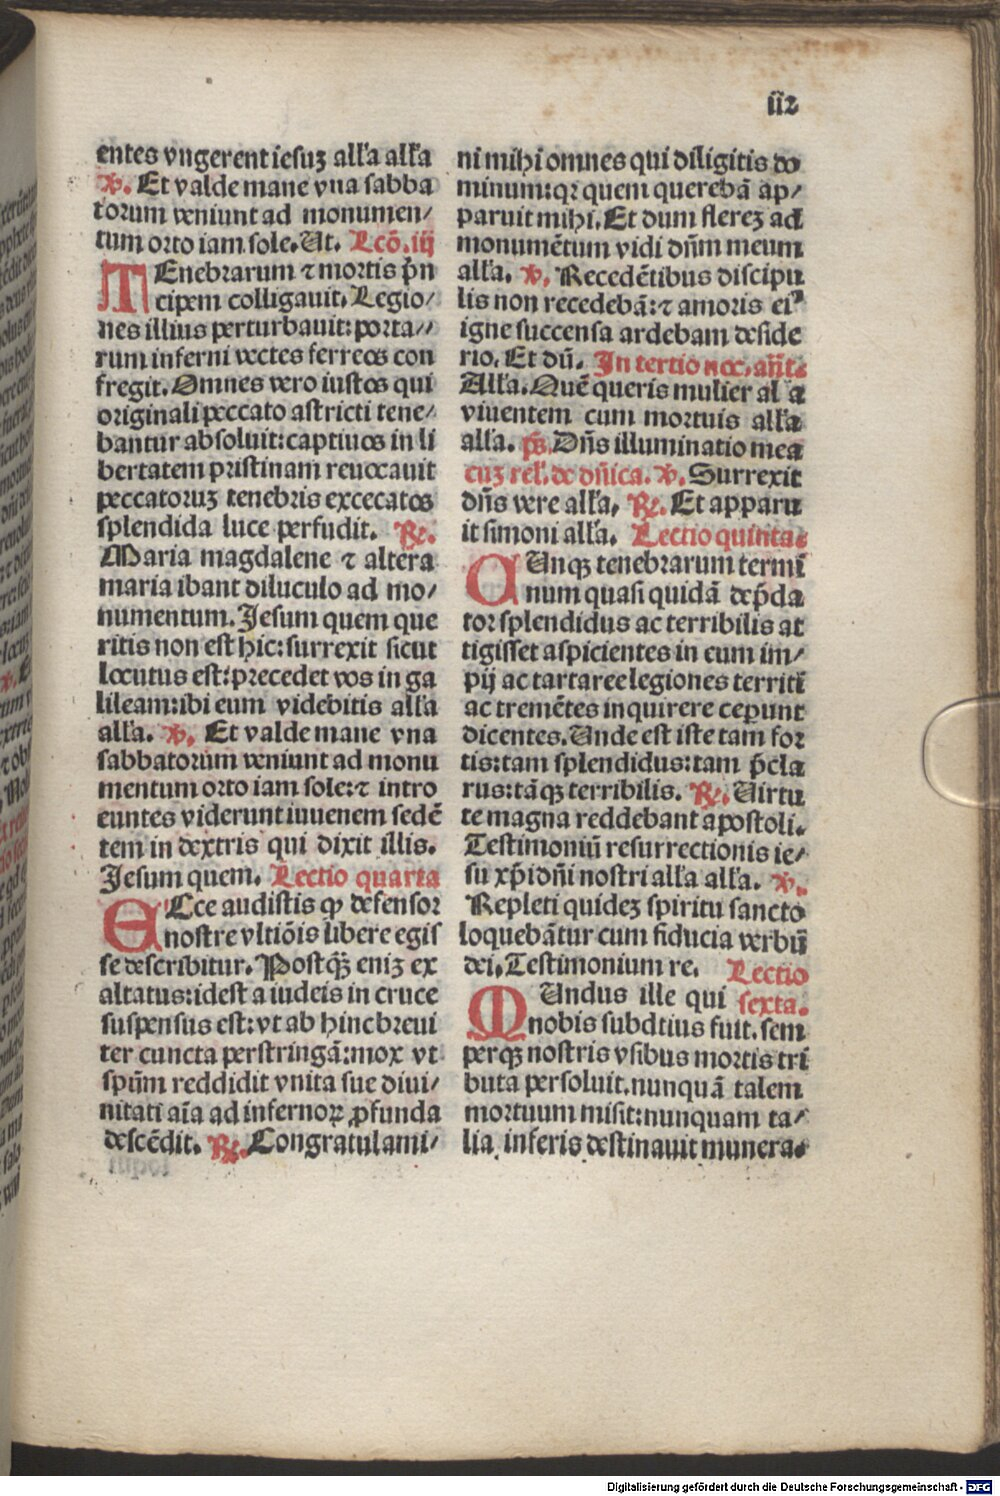 112
entes vngerent iesuȝ alľa alľa
℣. Et valde mane vna sabba
torum veniunt ad monumen/
tum orto iam sole. Ut. Lcō. iij
TEnebrarum ⁊ mortis p̄n
cipem colligauit. Legio/
nes illius perturbauit: porta//
rum inferni vectes ferreos con
fregit. Omnes vero iustos qui
originali peccato astricti tene/
bantur absoluit: captiuos in li
bertatem pristinam reuocauit
peccatoruȝ tenebris excecatos
splendida luce perfudit. ℟.
Maria magdalene ⁊ altera
maria ibant diluculo ad mo/
numentum. Jesum quem que
ritis non est hic: surrexit sicut
locutus est: precedet vos in ga
lileam: ibi eum videbitis alľa
alľa. ℣. Et valde mane vna
sabbatorum veniunt ad monu
mentum orto iam sole: ⁊ intro
euntes viderunt iuuenem sedē
tem in dextris qui dixit illis.
Jesum quem. Lectio quarta
ECce audistis ꝙ defensor
nostre vltiōis libere egis
se describitur. Postq̄ȝ eniȝ ex
altatus: idest a iudeis in cruce
suspensus est: vt ab hinc breui
ter cuncta perstringā: mox vt
spūm reddidit vnita sue diui/
nitati aīa ad infernoꝝ ꝓfunda
descēdit. ℟. Congratulami/
ni mihi omnes qui diligitis do
minum: qꝛ quem querebā ap/
paruit mihi. Et dum flereȝ ad
monumētum vidi dn̄m meum
alľa. ℣. Recedētibus discipu
lis non recedebā: ⁊ amoris eiꝰ
igne succensa ardebam deside
rio. Et dū. In tertio noc. an̄t.
Alľa. Quē queris mulier al a
viuentem cum mortuis alľa
alľa. ps. Dn̄s illuminatio mea
cuȝ rel. de dn̄ica. ℣. Surrexit
dn̄s vere alľa. ℟. Et apparu
it simoni alľa. Lectio quinta.
CUnqȝ tenebrarum termī
num quasi quidā dep̄da
tor splendidus ac terribilis at
tigisset aspicientes in eum im/
pij ac tartaree legiones territī
ac tremētes inquirere ceperunt
dicentes. Unde est iste tam for
tis: tam splendidus: tam p̄cla
rus: tāqȝ terribilis. ℟. Uirtu
te magna reddebant apostoli.
Testimoniū resurrectionis ie/
su xp̄i dn̄i nostri alľa alľa. ℣.
Repleti quideȝ spiritu sancto
loquebātur cum fiducia verbū
dei. Testimonium re. Lectio
MUndus ille qui sexta.
nobis subdtius fuit. sem
perqȝ nostris vsibus mortis tri
buta persoluit. nunquā talem
mortuum misit: nunquam ta/
lia inferis destinauit munera.
Digitalisierung gefördert durch die Deutsche Forschungsgemeinschaft - DFG